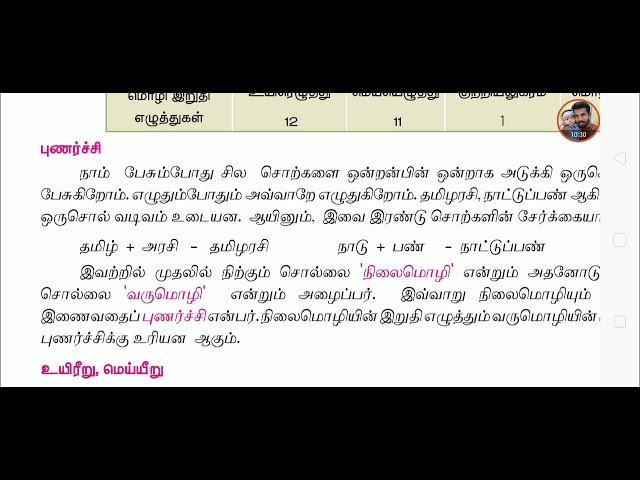 மொழி இறுதி
எழுத்துகள் 12 11 1
10:30
புணர்ச்சி
நாம் பேசும்போது சில சொற்களை ஒன்றன்பின் ஒன்றாக அடுக்கி
பேசுகிறோம். எழுதும்போதும் அவ்வாறே எழுதுகிறோம். தமிழரசி, நாட்டுப்பண் ஆகி
ஒருசொல் வடிவம் உடையன. ஆயினும், இவை இரண்டு சொற்களின்
தமிழ் + அரசி - தமிழரசி நாடு + பண் - நாட்டுப்பண்
இவற்றில் முதலில் நிற்கும் சொல்லை 'நிலைமொழி' என்றும் அதனோடு
சொல்லை 'வருமொழி' என்றும் அழைப்பர். இவ்வாறு நிலைமொழியும்
இணைவதைப் புணர்ச்சி என்பர். நிலைமொழியின் இறுதி எழுத்தும் வருமொழியின்
புணர்ச்சிக்கு உரியன ஆகும்.
உயிரீறு, மெய்யீறு